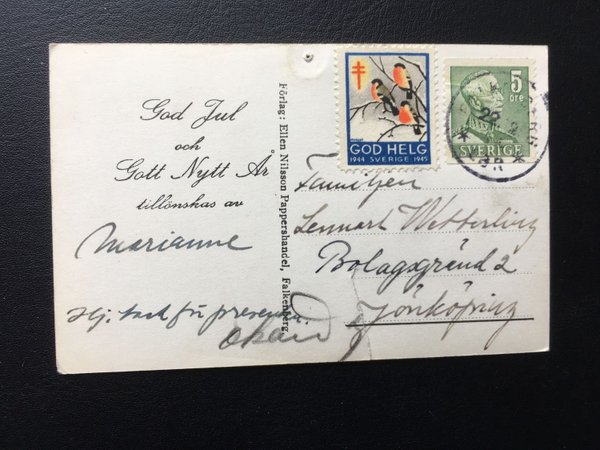 God Jul
och
Gott Nytt År
tillönskas av
Marianne
Hej, tack för presenten.
Förlag: Ellen Nilsson Pappershandel, Falkenberg.
GOD HELG
1944 SVERIGE 1945
5
öre
SVERIGE
Familjen
Lennart Wetterling
Bolagsgränd 2
Jönköping
okänd